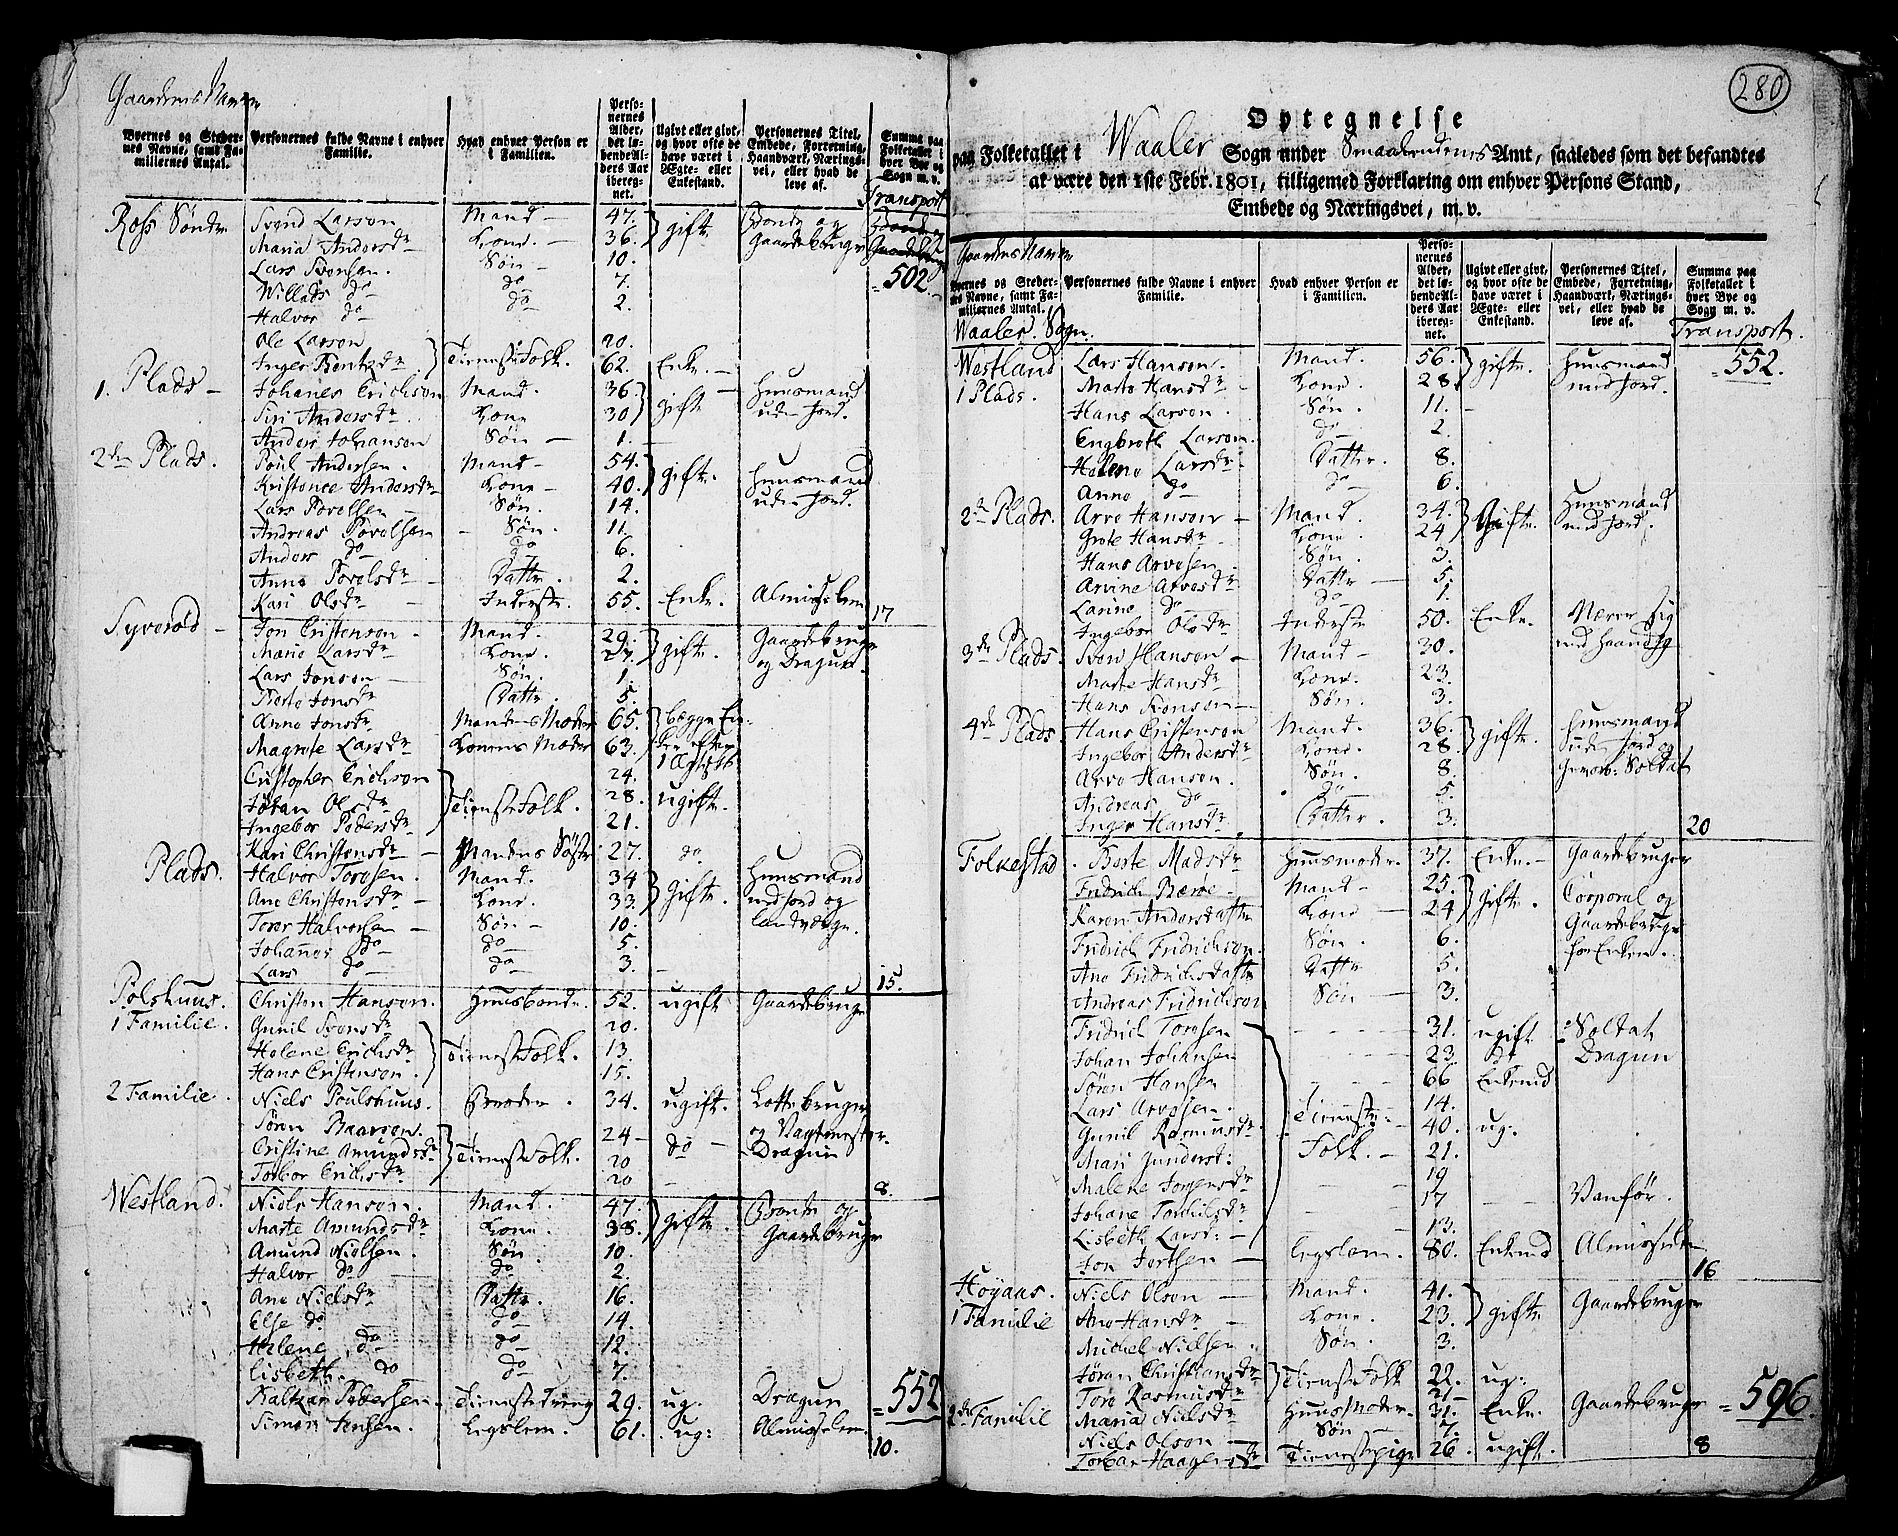 Gaardenes Navne
Byernes og Stedernes Navne, samt Familiernes Antal. Personernes fulde Navne i enhver Familie. Hvad enhver Person er i Familien. Personernes Alder, det løbende Alders Aar iberegnet. Ugivt eller givt, og hvor ofte de have været i Ægte- eller Enkestand. Personernes Titel, Embede, Forretning, Haandværk, Næringsvei, eller hvad de leve af. Summa paa Folketallet i hver Bye og Sogn m. v.
Transport
Ross Søndre Svend Larson Mand 47. gift Bonde og
Maria Andersdr Kone. 36. Gaardebruger
Lars Svensen. Søn 10. 502.
Willads do do 7.
Halvor do do 2.
Ole Larson 20.
Inger Bentsdr Tieneste Folk. 62. Enke.
1. Plads Johanes Erichson Mand. 36 gift Huusmand
Siri Andersdr Kone 30 uden Jord.
Anders Johanson Søn 1.
2den Plads. Poul Andersen. Mand 54. gift. Huusmand
Kristence Andersdr Kone 40. uden Jord.
Lars Povelsen Søn. 14.
Andreas Povelsen Søn. 11.
Anders do do 6.
Anne Povelsdr Datter. 2.
Kari Olsdr Inderste. 55. Enke. Almisselem 17
Syverød Jon Cristenson Mand. 29. gift. Gaardebruger
Marie Larsdr Kone. 27. og Dragun.
Lars Jonson Søn. 1.
Marte Jonsdr Datter. 5.
Anne Jonsdr Mandens Moder 65. begge En-
Magrete Larsdr Konens Moder 63. ker efter
1 Ægtsk
Cristopher Erichson 24.
Johan Olsdr Tieneste Folk. 28. ugifte.
Ingebor Pedersdr 21.
Kari Christensdr Mandens Søster 27. do
Plads. Halvor Torgsen. Mand. 34 gifte. Huusmand
Ane Christensdr Kone. 33. med Jord og
Torer Halvorsen Søn 10. landværge.
Johannes do do 5.
Lars do do 3. 15.
Polshuus. Christen Hanson. Huusbonde. 52. ugift Gaardebruger
1 Familie. Gunil Svensdr 20.
Helene Erichsdr Tieneste Folk. 13.
Hans Cristenson. 15.
2 Familie. Niels Poulshuus. Broder. 34. ugift. Lottebruger
Søren Baarson. 24 do og Vagtmester.
Cristine Amundsdr Tieneste Folk. 20 Dragun
Torbor Erichsdr 20 8.
Westland. Niels Hanson. Mand. 47. gifte. Bonde og
Marte Amundsdr Kone. 38. Gaardebruger
Amund Nielsen. Søn 10.
Halvor do do 2.
Ane Nielsdr Datter. 16.
Else do do 14.
Helene do do 12.
Lisbeth. do do 7.
Baltzar Pedersen. Tieneste Dreng 29. ug. Dragun 552
Simon Jensen. Legslem. 61. ug: Almisselem. 10.
280
Optegnelse
paa Folketallet i Waaler Sogn under Smaalendenes Amt, saaledes som det befandtes
at være den 1ste Febr. 1801, tilligemed Forklaring om enhver Persons Stand,
Embede og Næringsvei, m. v.
Gaardens Navne
Byernes og Stedernes Navne, samt Familiernes Antal. Personernes fulde Navne i enhver Familie. Hvad enhver Person er i Familien. Personernes Alder, det løbende Alders Aar iberegnet. Ugivt eller givt, og hvor ofte de have været i Ægte- eller Enkestand. Personernes Titel, Embede, Forretning, Haandværk, Næringsvei, eller hvad de leve af. Summa paa Folketallet i hver Bye og Sogn m. v.
Waaler Sogn. Transport.
Westland Lars Hanson. Mand. 56. gifte. Huusmand 552.
1 Plads. Marte Hansdr Kone. 28. med Jord.
Hans Larson. Søn. 11.
Engbreth Larson. do 2.
Helene Larsdr. Datter. 8.
Anne do do 6.
2de Plads. Arve Hanson Mand. 34. Gifte. Huusmand
Grete Hansdr Kone. 24 med Jord.
Hans Arvesen. Søn. 3.
Arvine Arvesdr Datter 5.
Larine do do 1.
Ingebor Olsdr Inderste 50. Enke. Nærer sig
3de Plads. Sven Hanson Mand 30. ved haand
Marte Hansdr Kone. 23.
Hans Svenson Søn. 3.
4de Plads. Hans Cristenson Mand. 36. gifte. Huusmand
Ingebor Andersdr Kone. 28. uden Jord og
Arve Hanson. Søn. 8. gevorb: Soldat
Andreas do do 5.
Inger Hansdr Datter. 3. 20
Folkestad. Berte Madsdr Huusmoder. 37. Enke. Gaardebruger
Fridrich Bærøe Mand 25. gifte. Corporal og
Karen Andersdatter Kone 24 Gaardebruger
Fridrich Fridrichson. Søn. 6. for Enken.
Ane Fridrichsdatter Datter 5.
Andreas Fridrichson Søn 3.
Fridrich Torgsen 31. ugift Soldat
Johan Johansen 23. do Dragun
Søren Hansen 66 Enkemd
Lars Arvesen. Tieneste 14.
Gunil Rasmusdr. 40. ug.
Mari Gunderst: Folk. 21.
Malene Jorgensdr 19
Johane Torkilsdr 17 Vanfør.
Lisbeth Larsd: 13.
Jon Jortsen Legslem. 80. Enkemd Almisselem 16
Høyaas. Niels Olson Mand. 41. gifte Gaardebruger
1 Familie Ane Hansdr Kone. 23.
Michel Nielsen. Søn. 3.
Jøran Christiansdr Tieneste Folk 22. ug:
Tore Rasmusdr 21
2de Familie Maria Nielsdr Huus Moder. 31. Enke. Gaardebruger 596.
Niels Olson Søn 7.
Torbor Haagensdr Tienestepige 26. ugift. 8